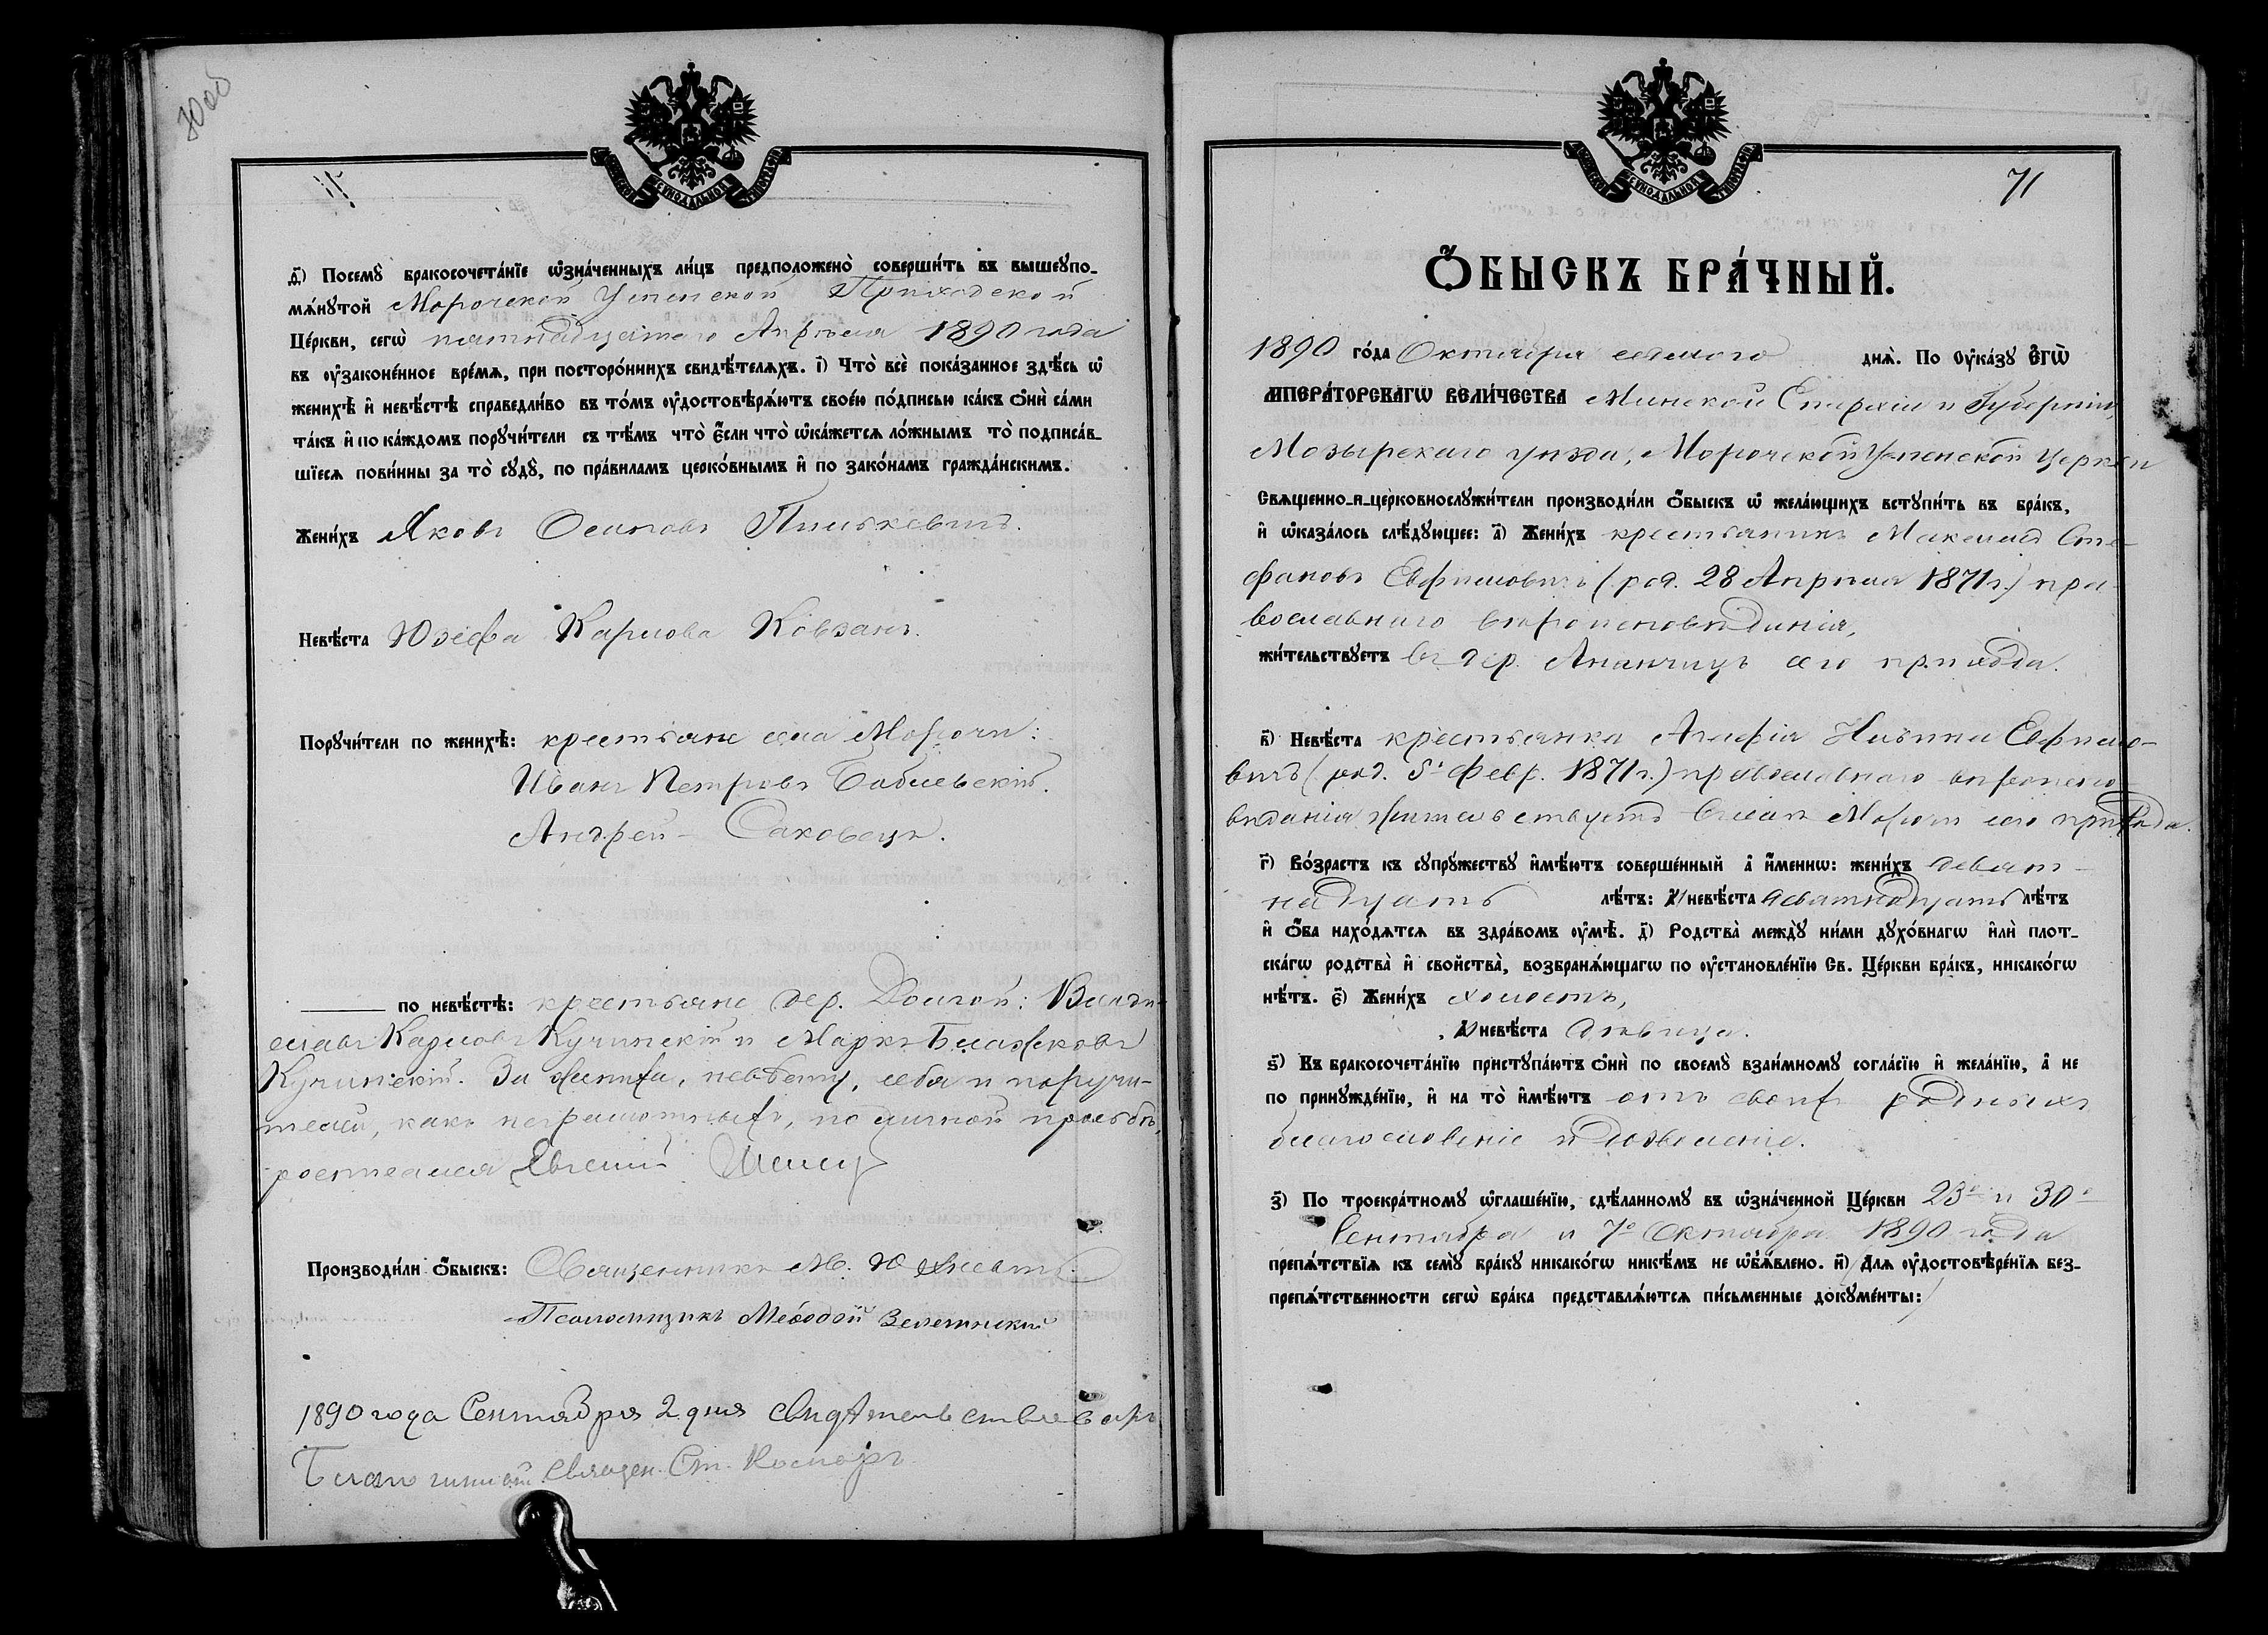 70 об
Ѳ҃) Посемꙋ̀ бракосочета́нїе ѡ҆зна́ченныхъ ли́цъ предположено̀ соверши́ть въ вышеꙋпо_
мѧ́нꙋтой Морочской Успенской Приходской
Це́ркви, сегѡ̀ пятнадцатаго Апрѣля 1890 года
въ ᲂу҆законе́нное вре́мѧ, при посторо́ннихъ свидѣ́телѧхъ. і҃) Что̀ всѐ пока́занное здѣ́сь ѡ҆
женихѣ̀ и҆ невѣ́стѣ справедли́во въ то́мъ ᲂу҆достовѣрѧ́ютъ свое́ю по́дписью ка́къ ѻ҆нѝ са́ми
та́къ и҆ по ка́ждомъ порꙋчи́тели съ тѣ́мъ что̀ є҆́сли что̀ ѡ҆ка́жетсѧ ло́жнымъ то̀ подписа́в_
шїесѧ пови́нны за то̀ сꙋдꙋ̀, по пра́виламъ церко́внымъ и҆ по зако́намъ гражда́нскимъ.
Жени́хъ Яковъ Осиповъ Пилькевичъ.
Невѣ́ста Юзефа Карлова Ковзанъ.
Порꙋчи́тели по женихѣ̀: крестьяне села Морочи:
Иванъ Петровъ Бобылевскій.
Андрей Саковецъ.
по невѣ́стѣ: крестьяне дер. Долгой: Влади-
славъ Карловъ Кучинскій и Марко Блажковъ
Кучинскій. За жениха, невѣсту, себя и поручи-
телей, какъ неграмотныхъ, по личной просьбѣ,
росписался Евгеній
Производи́ли ѻ҆́быскъ: Священникъ М.
Псаломщикъ Меѳодій
1890 года Сентября 2 дня свидѣтельствовалъ
Благочинный Священ. Ст.
71
Ѻ҆́БЫСКЪ БРА́ЧНЫЙ.
1890 го́да Октября седьмого днѧ̀. По Оу҆ка́зꙋ Є҆ГѠ̀
И҆МПЕРА́ТОРСКАГѠ ВЕЛИ́ЧЕСТВА Минской Епархіи и Губерніи,
Мозырскаго уѣзда, Морочской Успенской церкви
Свѧщенно_и_церковнослꙋжи́тели производи́ли ѻ҆́быскъ ѡ҆ жела́ющихъ встꙋпи́ть въ бра́къ,
и҆ ѡ҆каза́лось слѣ́дꙋющее: а҃) Жени́хъ крестьянинъ Максимъ Сте-
фановъ Евфимовичъ (род. 28 Апрѣля 1871 г.) пра-
вославнаго вѣроисповѣданія,
жи́тельствꙋетъ въ дер. Ананчицъ сего прихода.
в҃) Невѣ́ста крестьянка Агафія Ильина Евфимо-
вичъ (род. 5 Февр. 1871 г.) православнаго вѣроиспо-
вѣданія жительствуетъ въ селѣ Морочи сего прихода.
г҃) Во́зрастъ къ сꙋпрꙋ́жествꙋ и҆мѣ́ютъ соверше́нный а҆̀ и҆́меннѡ: жени́хъ девят-
надцать лѣ́тъ: а҆ невѣ́ста девятнадцать лѣ́тъ
и҆ ѻ҆́ба нахо́дѧтсѧ въ здра́вомъ ᲂу҆мѣ̀. д҃) Родства̀ междꙋ̀ ни́ми дꙋхо́внагѡ и҆лѝ плот_
ска́гѡ родства̀ и҆ сво́йства̀, возбранѧ́ющагѡ по ᲂу҆становле́нїю Св. Це́ркви бра́къ, никако́гѡ
нѣ́тъ. є҃) Жени́хъ холостъ,
а҆ невѣ́ста дѣвица.
ѕ҃) Къ бракосочета́нїю пристꙋпа́ютъ ѻ҆нѝ по своемꙋ̀ взаи́мномꙋ согла́сїю и҆ жела́нїю, а҆ не
по принꙋжде́нїю, и҆ на то̀ и҆мѣ́ютъ отъ своихъ родныхъ
благословеніе и дозволеніе.
з҃) По троекра́тномꙋ ѡ҆глаше́нїю, сдѣ́ланномꙋ въ ѡ҆зна́ченной Це́ркви 23о и 30о
Сентября и 7о Октября 1890 года
препѧ́тствїѧ къ семꙋ̀ бра́кꙋ никако́гѡ никѣ́мъ не ѡ҆б̾ѧ́влено. и҃) Длѧ ᲂу҆достовѣре́нїѧ без_
препѧ́тственности сегѡ̀ бра́ка представлѧ́ютсѧ пи́сьменные докꙋме́нты: